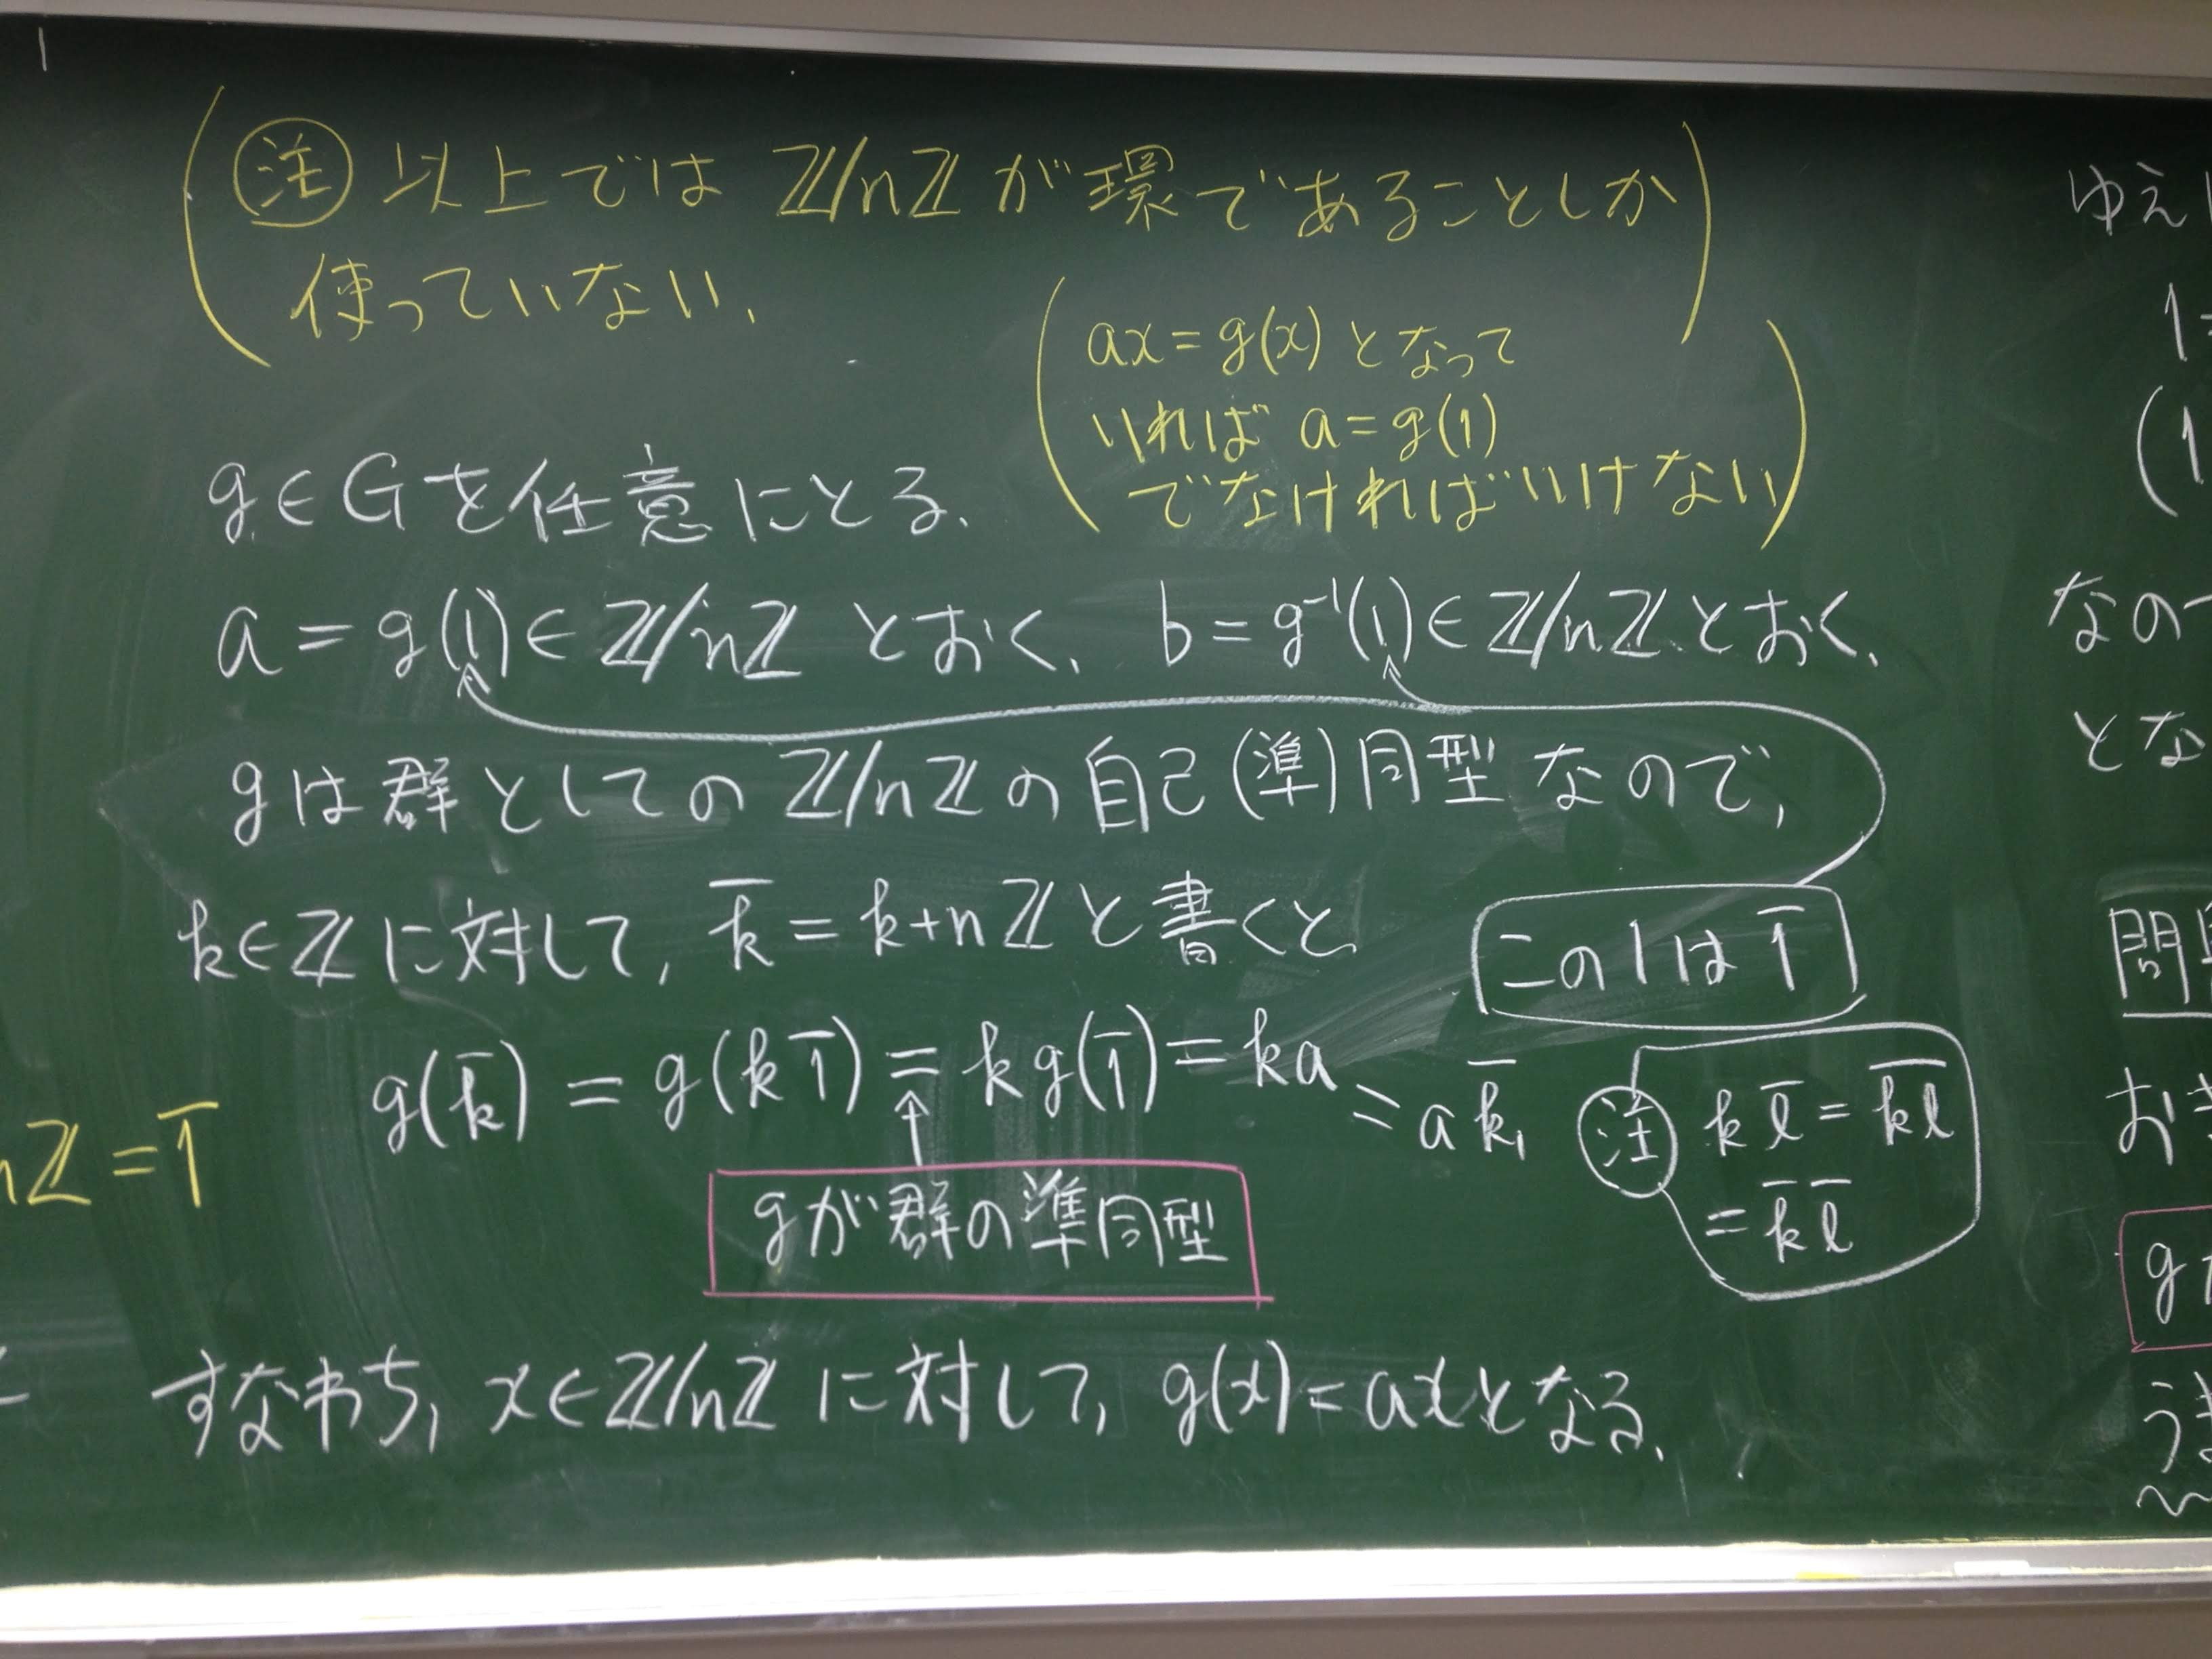 (注 以上では ℤ/nℤ が環であることしか
使っていない.)
(ax = g(x) となって
いれば a = g(1)
でなければいけない)
g∈G を任意にとる.
a = g(1) ∈ ℤ/nℤ とおく. b = g⁻¹(1) ∈ ℤ/nℤ とおく.
gは群としての ℤ/nℤ の自己(準)同型なので,
k∈ℤに対して, k̅ = k+nℤ と書くと
この1は 1̅
g(k̅) = g(k1̅) = kg(1̅) = ka = ak̅,
注 k l̅ = k̅l̅
= k̅ l̅
gが群の準同型
nℤ = 1̅
すなわち, x∈ℤ/nℤ に対して, g(x) = ax となる.
ゆえ
1=
(1
なの
とな
問
お
g
う